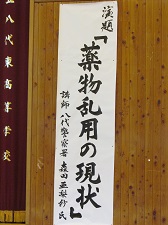 演題
「薬物乱用の現状」
講師 八代警察署 森田亜梨紗氏
八代東高等学校